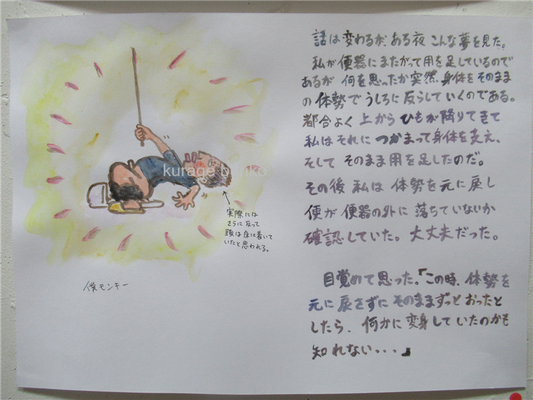 話は変わるが、ある夜こんな夢を見た。
私が便器にまたがって用を足しているので
あるが何を思ったか突然、身体をそのまま
の体勢でうしろに反らしていくのである。
都合よく上からひもが降りてきて
私はそれにつかまって身体を支え、
そしてそのまま用を足したのだ。
その後私は体勢を元に戻し
便が便器の外に落ちていないか
確認していた。大丈夫だった。
目覚めて思った。「この時、体勢を
元に戻さずにそのままずっとおったと
したら、何かに変身していたのかも
知れない・・・」
kurage
実際には
さらに反って
頭は床に着いて
いたと思われる。
モンキー